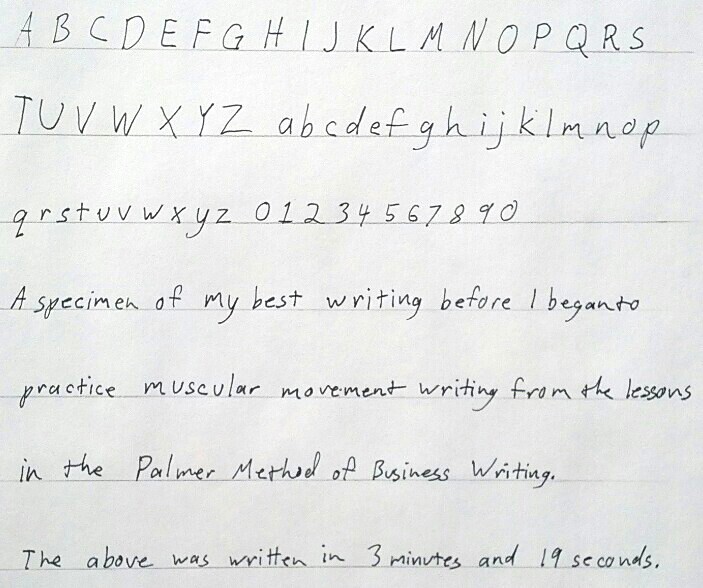 A B C D E F G H I J K L M N O P Q R S
T U V W X Y Z a b c d e f g h i j k l m n o p
q r s t u v w x y z 0 1 2 3 4 5 6 7 8 9 0
A specimen of my best writing before I began to
practice muscular movement writing from the lessons
in the Palmer Method of Business Writing.
The above was written in 3 minutes and 19 seconds.